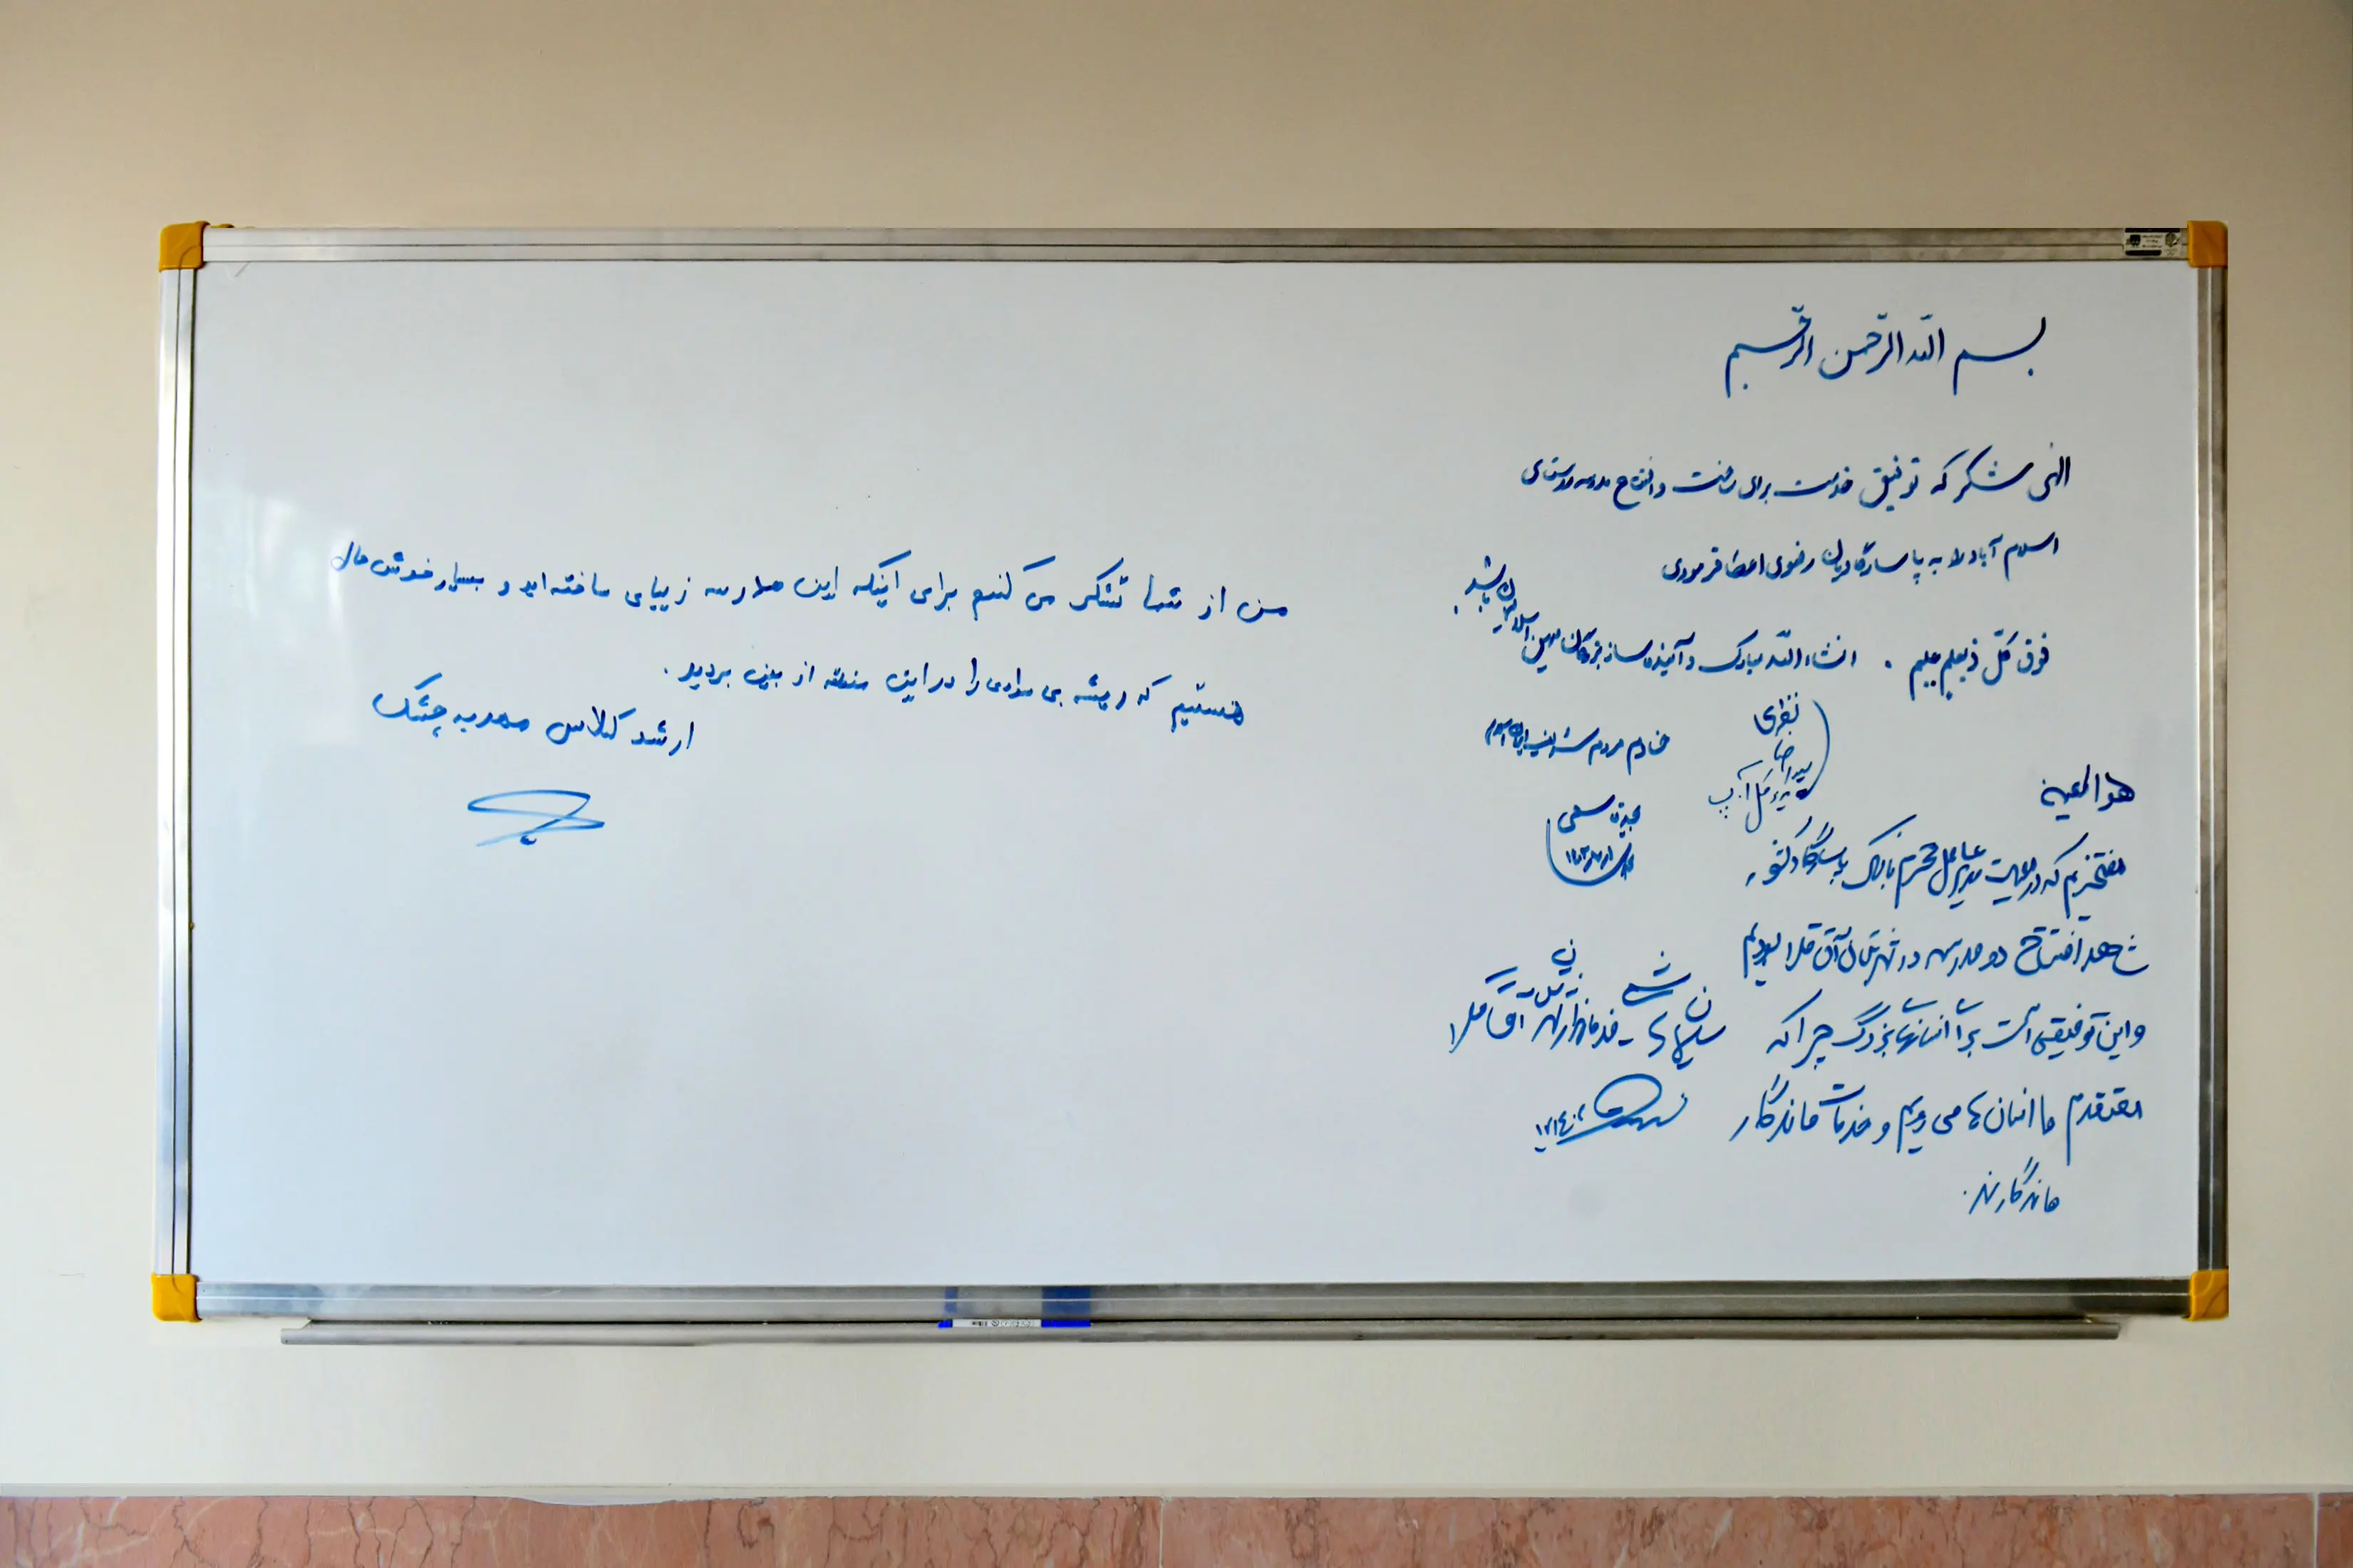 بسم الله الرحمن الرحیم
الهی شکر که توفیق خدمت برای ساخت و افتتاح مدرسه روستای
اسلام آباد را به پاسارگادیان رضوی اعطا فرمودی
فوق کل ذیعلم علیم . انشاءالله مبارک و آینده ساز بزرگان میهن اسلامی‌مان باشد.
خادم مردم شریف ایران اسلامی
هوالمعین
مفتخریم که در معیت مدیرعامل محترم بانک پاسارگاد دکتور
شاهد افتتاح دو مدرسه در شهرستان آق قلا بودیم
و این توفیقی است برای انسانهای بزرگ چرا که
معتقدم ما انسان ها می رویم و خدمات ماندگار
ماندگارند.
فرماندار شهرستان آق قلا
من از شما تشکر می کنم برای اینکه این مدارسه زیبای ساخته اید و بسیار خوش حال
هستیم که ریشه بی سوادی را در این منطقه از بین بردید.
ارشد کلاس مهدیه چشک